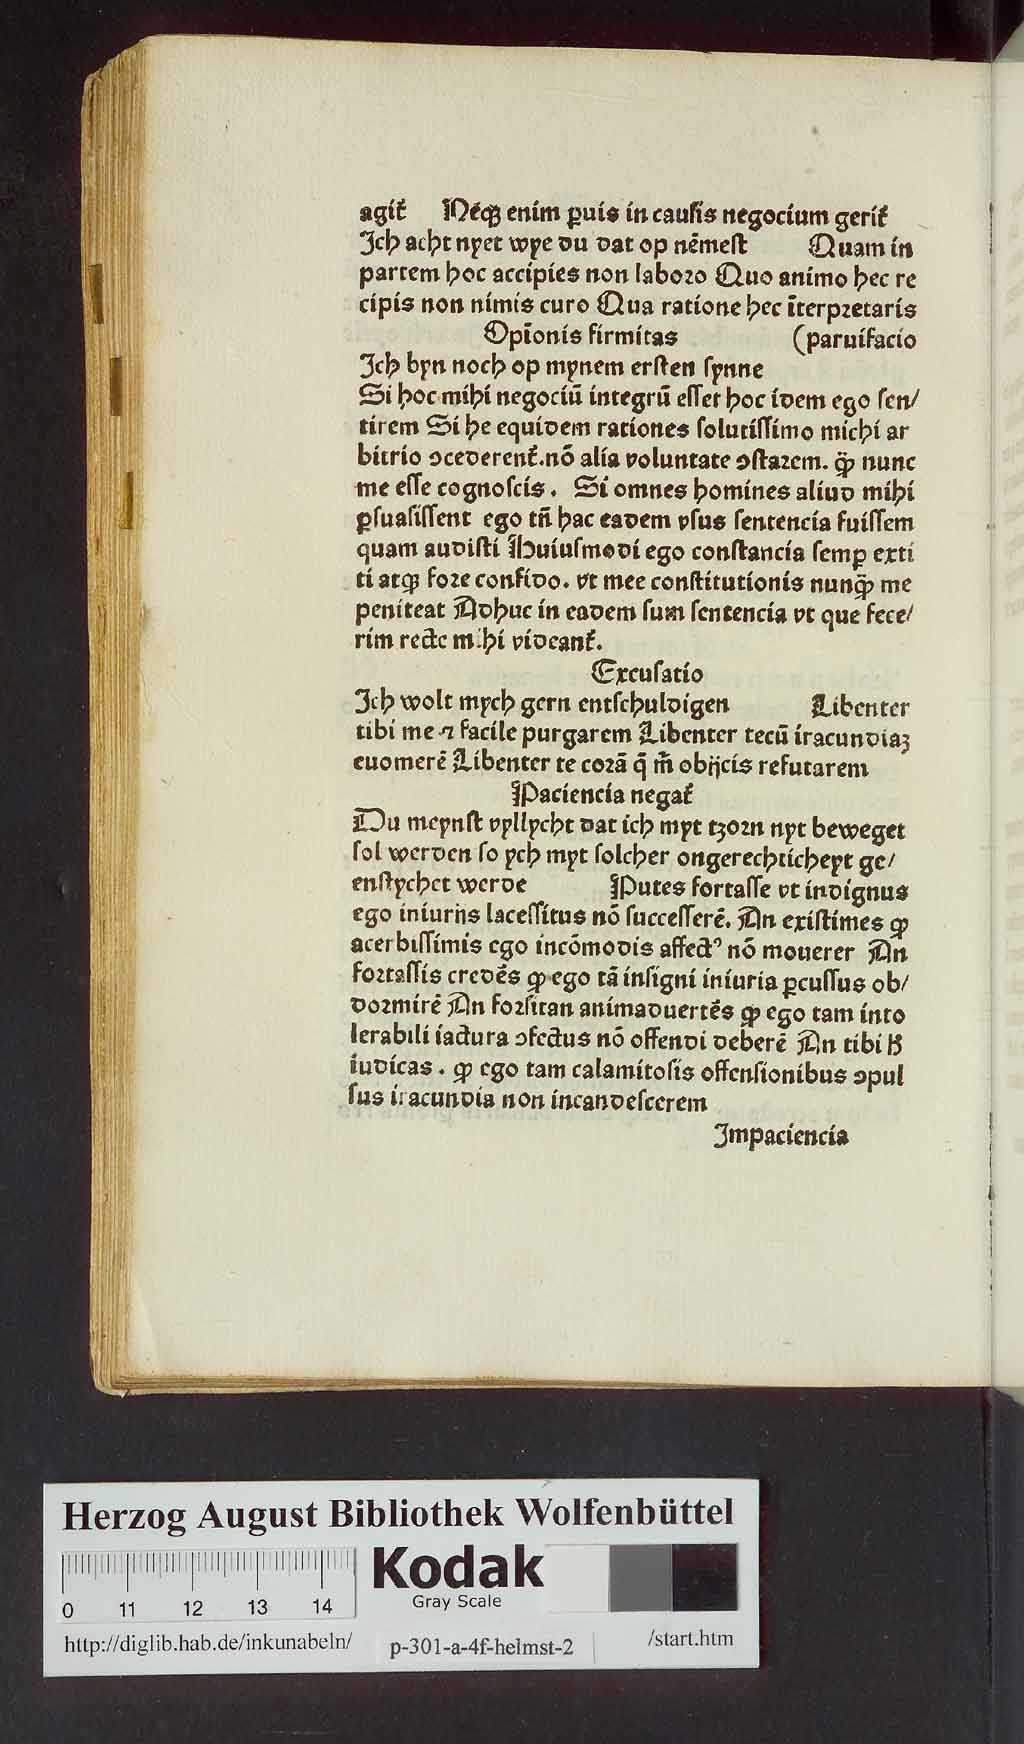 agit᷑ Neq̄ꝫ enim ꝑuis in cauſis negocium gerit᷑
Ich acht nyet wye du dat op nēmeſt Quam in
partem hoc accipies non laboꝛo Quo animo hec re
cipis non nimis curo Qua ratione hec īterpꝛetaris
Opīonis firmitas (paruifacio
Ich byn noch op mynem erſten ſynne
Si hoc mihi negociū integrū eſſet hoc idem ego ſen/
tirem Si he equidem rationes ſolutiſſimo michi ar
bitrio ꝯcederent᷑.nō alia voluntate ꝯſtaꝛem. q̄ꝫ nunc
me eſſe cognoſcis. Si omnes homines aliud mihi
ꝑſuaſiſſent ego tn̄ hac eadem vſus ſentencia fuiſſem
quam audiſti Huiuſmodi ego conſtancia ſemꝑ exti
ti atqꝫ foꝛe confido. vt mee conſtitutionis nunq̄ꝫ me
peniteat Adhuc in eadem ſum ſentencia vt que fece/
rim recte mihi videant᷑.
Excuſatio
Ich wolt mych gern entſchuldigen Libenter
tibi me ⁊ facile purgarem Libenter tecū iracundiaꝫ
euomerē Libenter te coꝛā q̄ m̄ obijcis refutarem
Paciencia negat᷑
Du meynſt vyllycht dat ich myt tzoꝛn nyt beweget
ſol werden ſo ych myt ſolcher ongerechticheyt ge/
enſtychet werde Putes fortaſſe vt indignus
ego iniurijs laceſſitus nō ſucceſſerē. An exiſtimes ꝙ
acerbiſſimis ego incōmodis affectꝰ nō mouerer An
foꝛtaſſis credēs ꝙ ego tā inſigni iniuria ꝑcuſſus ob/
doꝛmirē An foꝛſitan animaduertēs ꝙ ego tam into
lerabili iactura ꝯfectus nō offendi deberē An tibi
iudicas. ꝙ ego tam calamitoſis offenſionibus ꝯpul
ſus iracundia non incandeſcerem
Impaciencia
Herzog August Bibliothek Wolfenbüttel
Kodak
Gray Scale
0 11 12 13 14
http://diglib.hab.de/inkunabeln/ p-301-a-4f-helmst-2 /start.htm